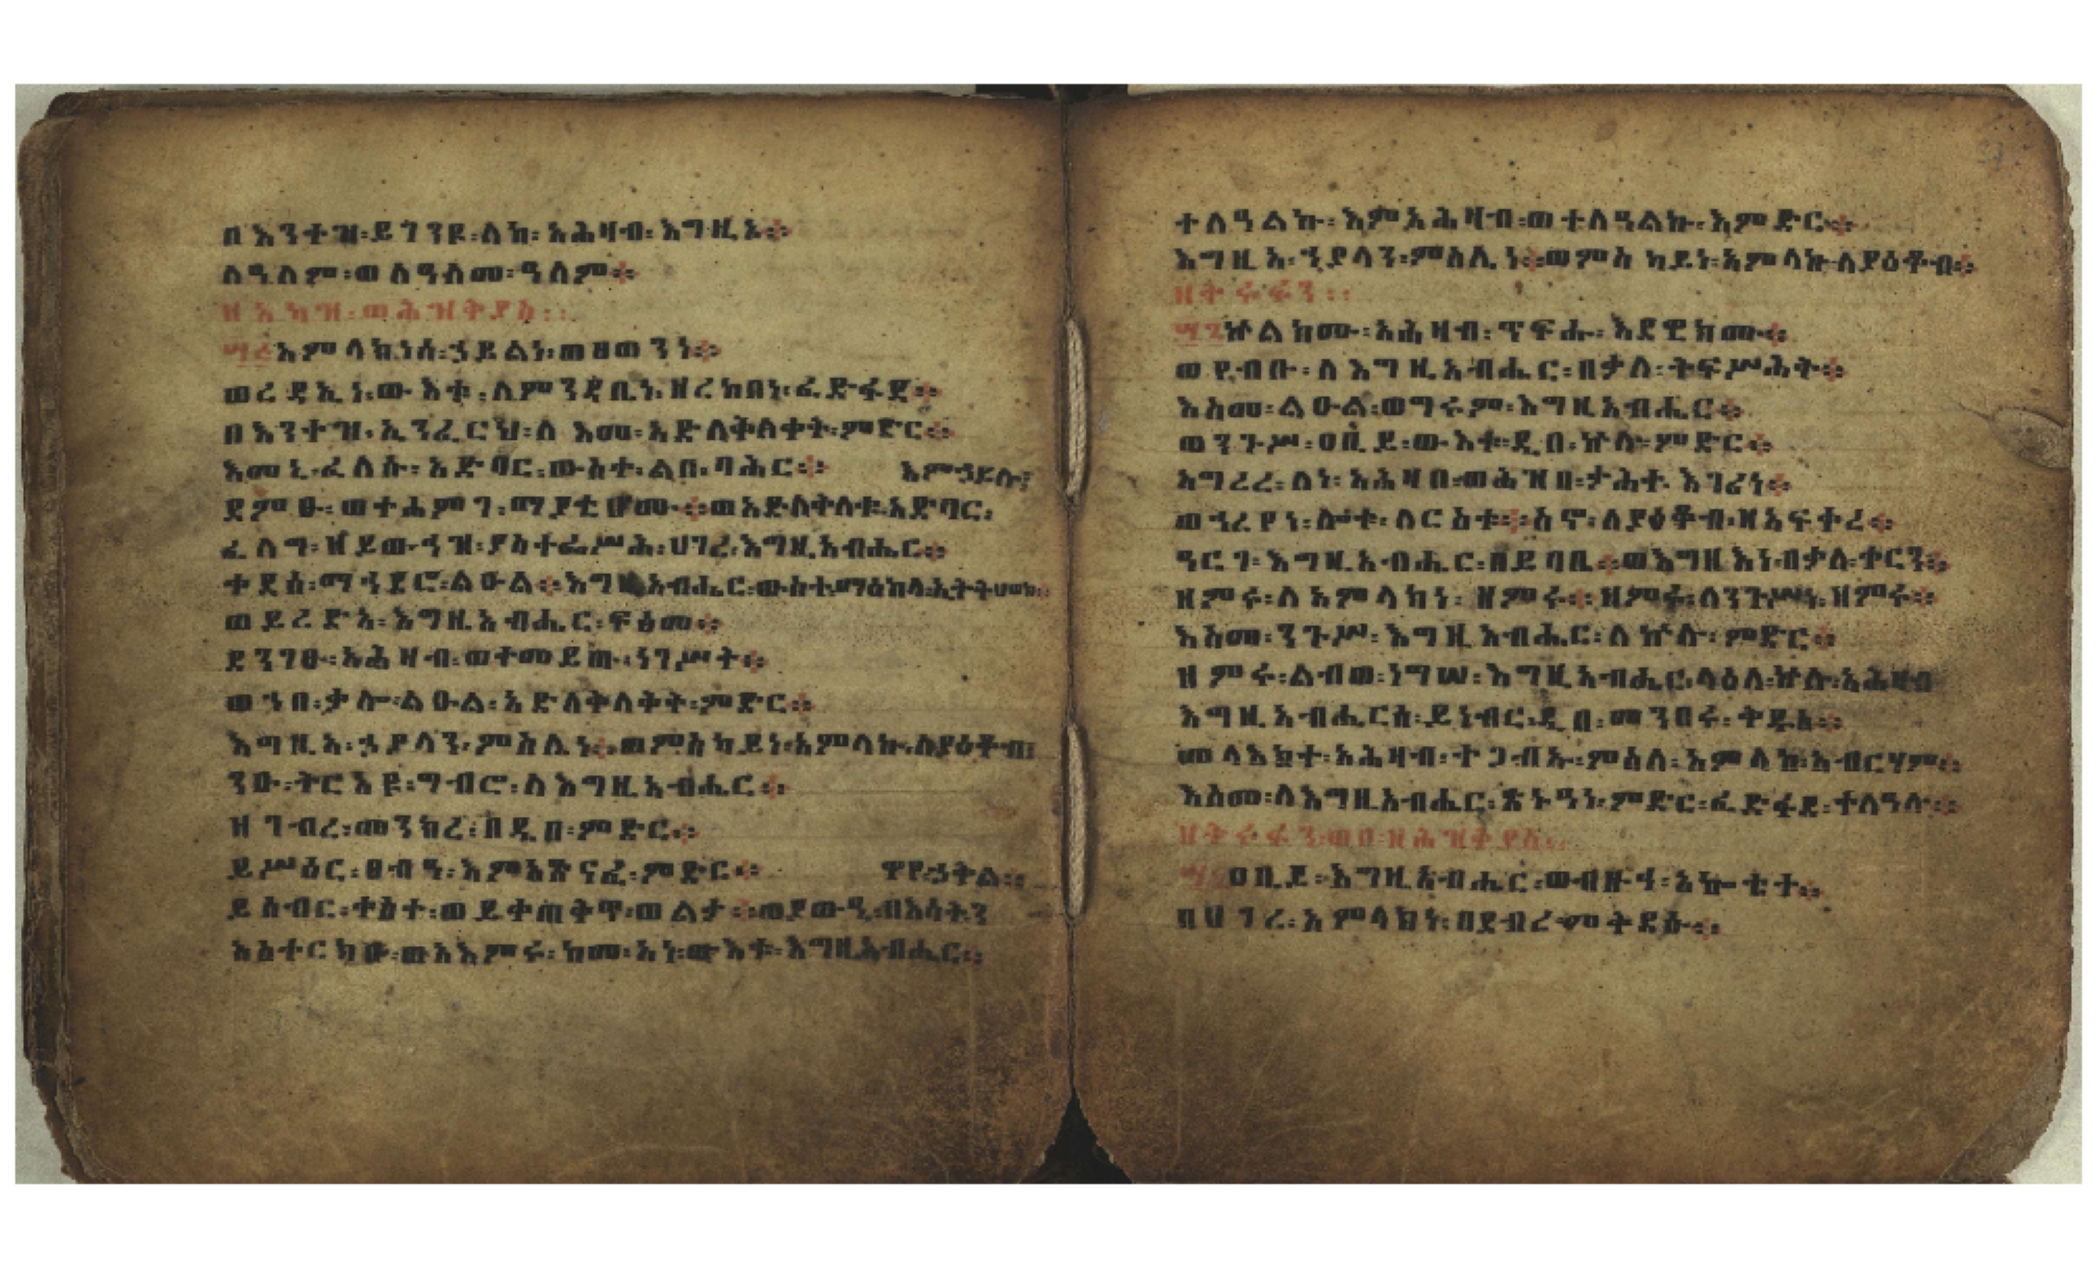 በእንተዝ፡ይገንዩ፡ለከ፡አሕዛብ፡እግዚኦ፨
ለዓለም፡ወለዓለመ፡ዓለም፨
ዘአካዝ፡ወሕዝቅያስ፡፡
አምላክነሰ፡ኃይልነ፡ወፀወንነ፨
ወረዳኢነ፡ውእቱ፡ለምንዳቤነ፡ዘረከበነ፡ፈድፋደ፨
በእንተዝ፡ኢንፈርህ፡ለእመ፡አድለቅለቀት፡ምድር፨
እመኒ፡ፈለሱ፡አድባር፡ውስተ፡ልበ፡ባሕር፨ እምኃይሉ፤
ደምፁ፡ወተሐምገ፡ማያቲሆሙ፨ወአድለቅለቁ፡አድባር፤
ፈለግ፡ዘይውኅዝ፡ያስተፌሥሕ፡ሀገረ፡እግዚአብሔር፨
ቀደሰ፡ማኅደሮ፡ልዑል፨እግዚአብሔር፡ውስተ፡ማዕከላ፡ኢትትሀወክ፨
ወይረድኣ፡እግዚአብሔር፡ፍፅመ፨
ደንገፁ፡አሕዛብ፡ወተመይጡ፡ነገሥት፨
ወኀበ፡ቃሎ፡ልዑል፡አድለቅለቅት፡ምድር፨
እግዚአ፡ኃያላን፡ምስሌነ፨ወምስካይነ፡አምላኩ፡ለያዕቆብ፤
ንዑ፡ትርእዩ፡ግብሮ፡ለእግዚአብሔር፨
ዘገብረ፡መንክረ፡በዲበ፡ምድር፨
ይሥዕር፡ፀብዓ፡እምአጽናፈ፡ምድር፨ ዋየኃትል፨
ይሰብር፡ቀስተ፡ወይቀጠቅጥ፡ወልታ፨ወያውዒ፡በእሳት፤
አስተርክቡ፡ወአእምሩ፡ከመ፡አነ፡ውእቱ፡እግዚአብሔር፨
ተለዓልኩ፡እምአሕዛብ፡ወተለዓልኩ፡እምድር፨
እግዚአ፡ኀያላን፡ምስሌነ፨ወምስካይነ፡አምላኩ፡ለያዕቆብ፨
ዘትሩፋን፡፡
ኵልክሙ፡አሕዛብ፡ጥፍሑ፡እደዊክሙ፨
ወየብቡ፡ለእግዚአብሔር፡በቃለ፡ትፍሥሕት፨
እስመ፡ልዑል፡ወግሩም፡እግዚአብሔር፨
ወንጉሥ፡ዐቢይ፡ውእቱ፡ዲበ፡ኵሉ፡ምድር፨
አግረረ፡ለነ፡አሕዛበ፡ወሕዝበ፡ታሕተ፡እገሪነ፨
ወኀረየነ፡ሎቱ፡ለርስቱ፨ስኖ፡ለያዕቆብ፡ዘአፍቀረ፨
ዓርገ፡እግዚአብሔር፡በይባቤ፨ወእግዚእነ፡በቃለ፡ቀርን፨
ዘምሩ፡ለአምላክነ፡ዘምሩ፨ዘምሩ፡ለንጉሥነ፡ዘምሩ፨
እስመ፡ንጉሥ፡እግዚአብሔር፡ለኵሉ፡ምድር፨
ዘምሩ፡ልብወ፡ነግሠ፡እግዚአብሔር፡ላዕለ፡ኵሉ፡አሕዛብ
እግዚአብሔርሰ፡ይነብር፡ዲበ፡መንበሩ፡ቅዱስ፨
መላእክተ፡አሕዛብ፡ተጋብኡ፡ምስለ፡አምላከ፡አብርሃም፨
እስመ፡ለእግዚአብሔር፡ጽኑዓነ፡ምድር፡ፈድፋደ፡ተለዓሉ፨
ዘትሩፋን፡ወበዘሕዝቅያስ፡፡
ዐቢይ፡እግዚአብሔር፡ወብዙኅ፡አኰቴቱ፨
በሀገረ፡አምላክነ፡በደብረ፡መቅደሱ፨